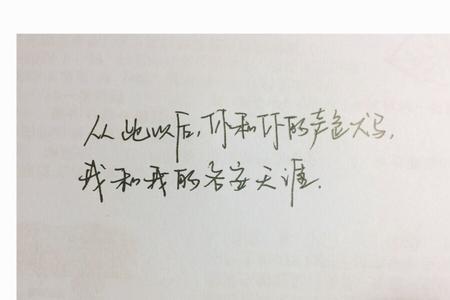 从此以后,你和你的声色犬马,
我和我的各安天涯.